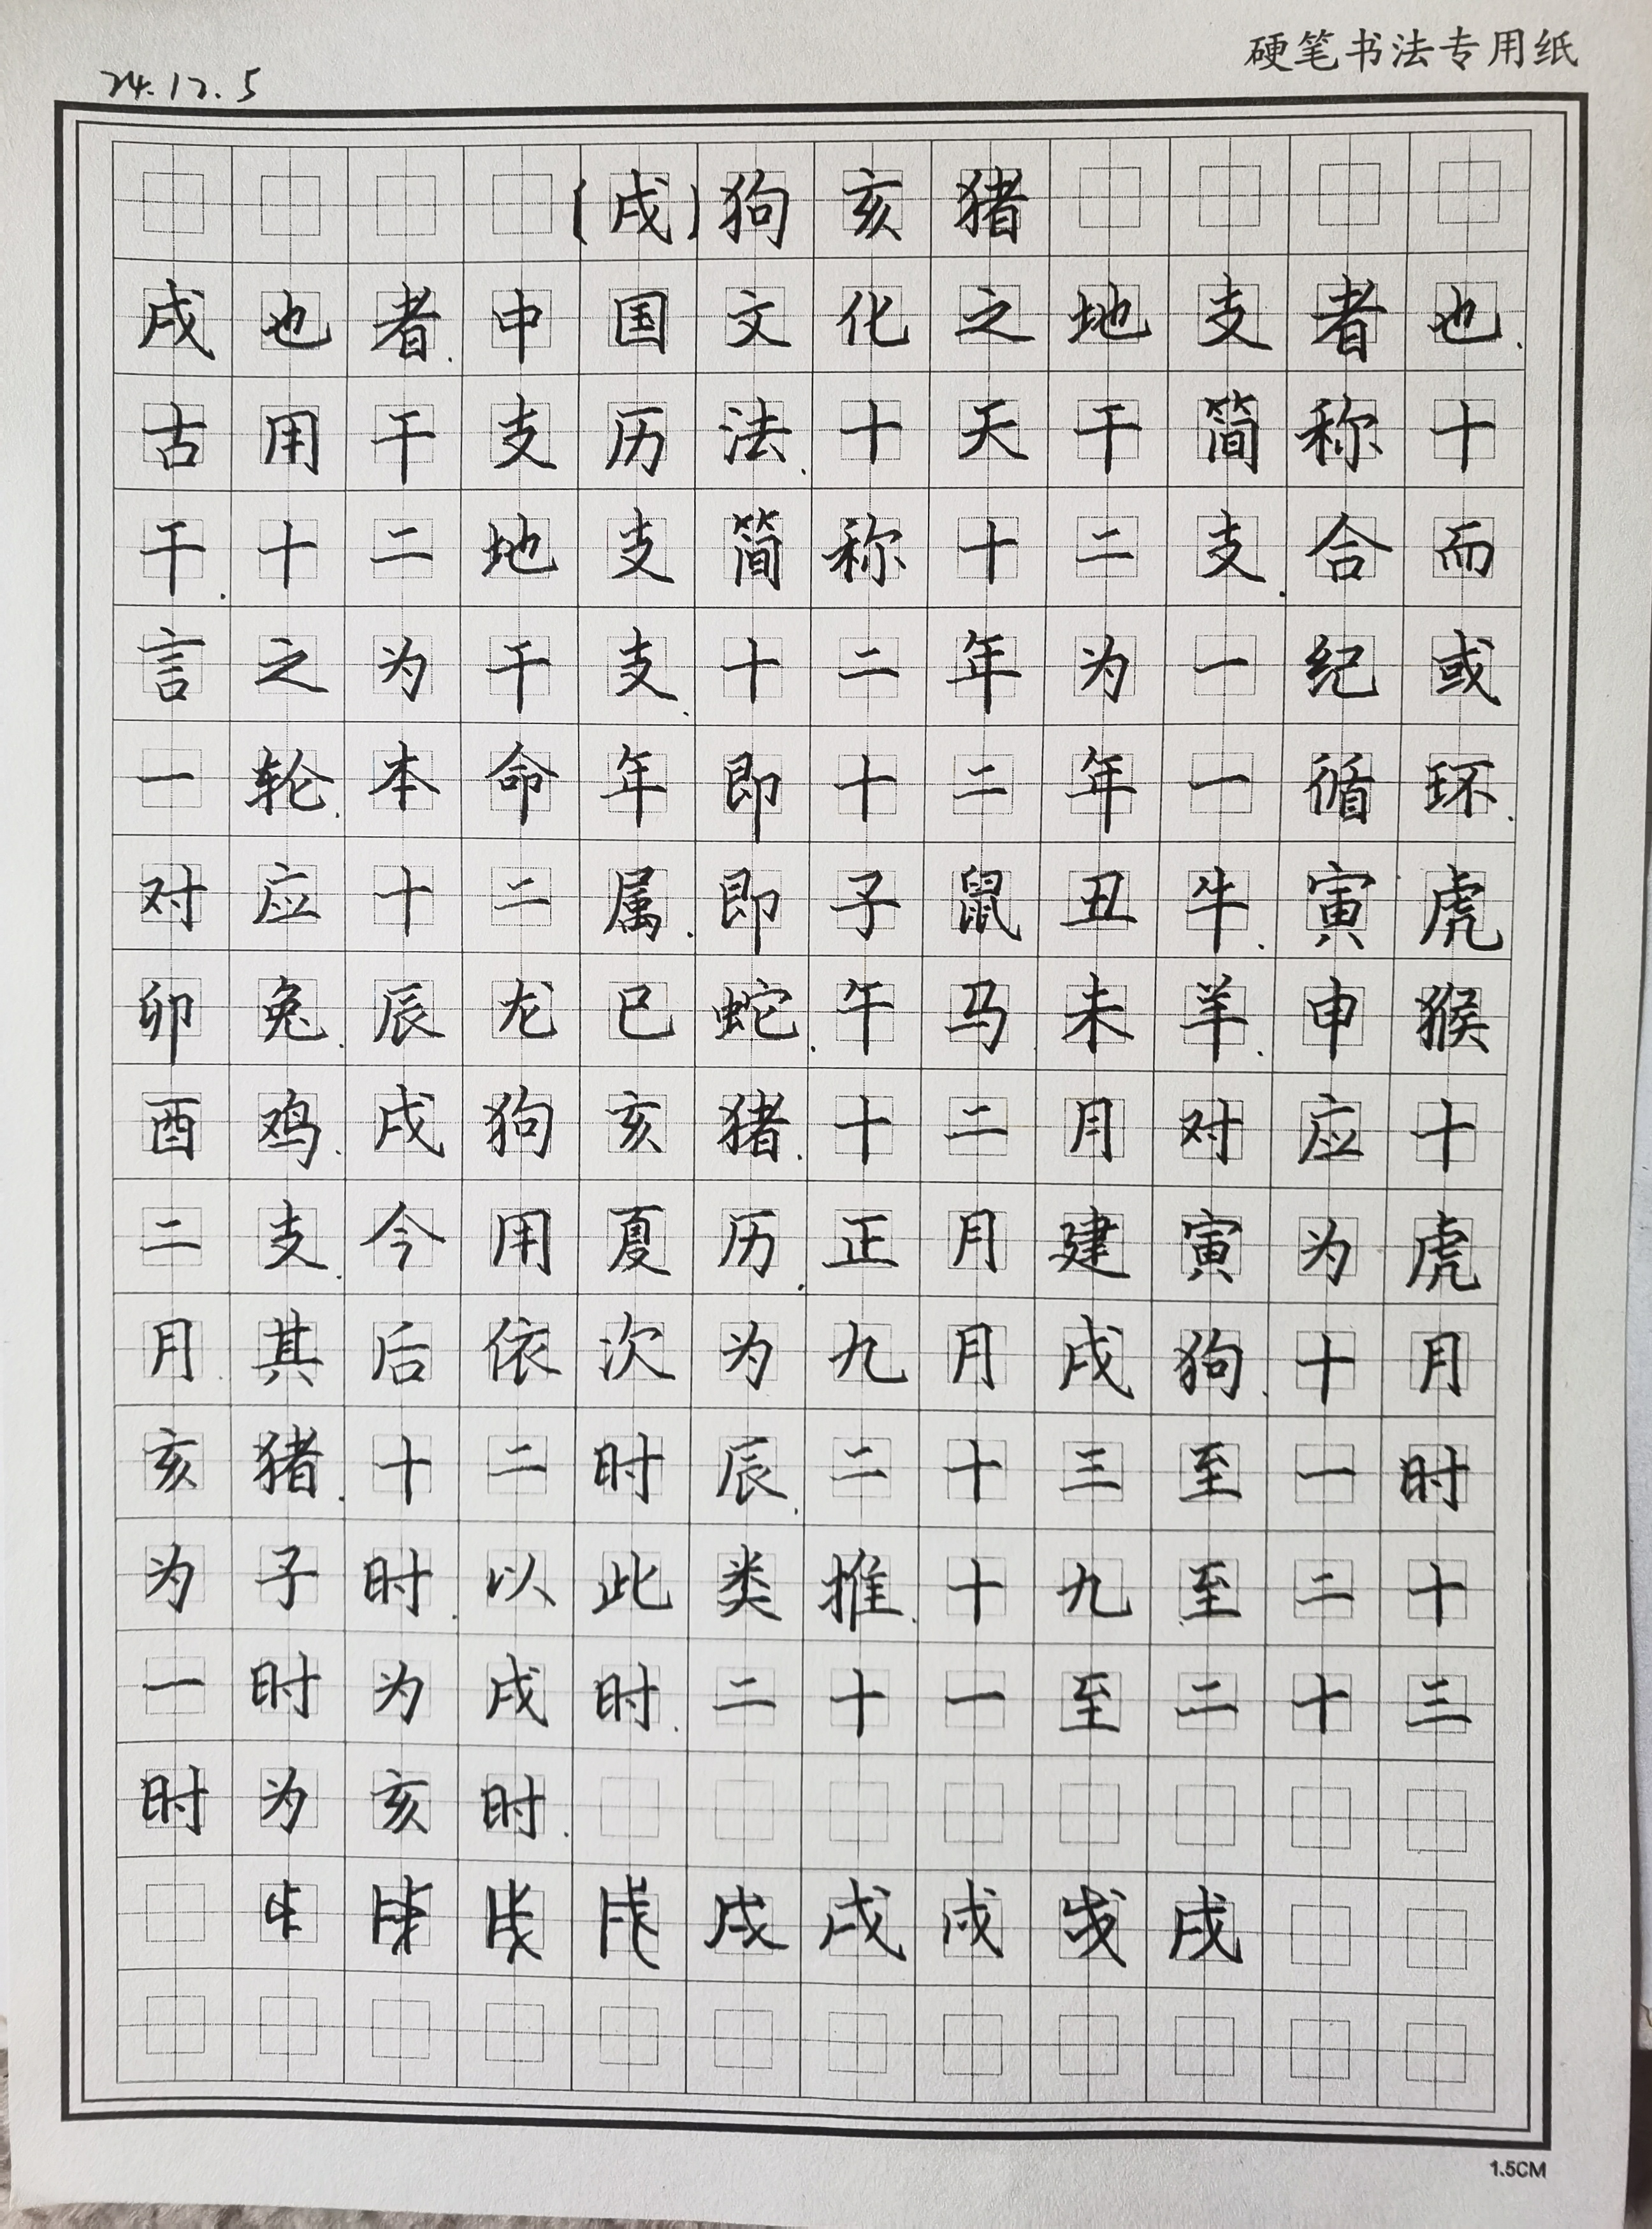 硬笔书法专用纸
24.12.5
(戌)狗亥猪
戌也者.中国文化之地支者也.
古用干支历法.十天干简称十
干.十二地支简称十二支.合而
言之为干支.十二年为一纪或
一轮.本命年即十二年一循环.
对应十二属.即子鼠丑牛.寅虎
卯兔.辰龙巳蛇.午马未羊.申猴
酉鸡.戌狗亥猪.十二月对应十
二支.今用夏历.正月建寅为虎
月.其后依次为九月戌狗.十月
亥猪.十二时辰.二十三至一时
为子时.以此类推.十九至二十
一时为戌时.二十一至二十三
时为亥时.
戌戌戌戌戌
1.5CM